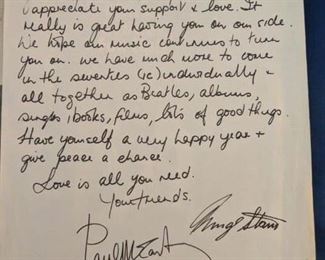 I appreciate your support & love. It
really is great having you on our side.
We hope our music continues to turn
you on. we have much more to come
in the seventies (ie) individually &
all together as Beatles, albums,
singles, books, films, lots of good things.
Have yourself a very happy year +
give peace a chance.
Love is all you need.
Your friends.
Ringo Starr
Paul McCartney